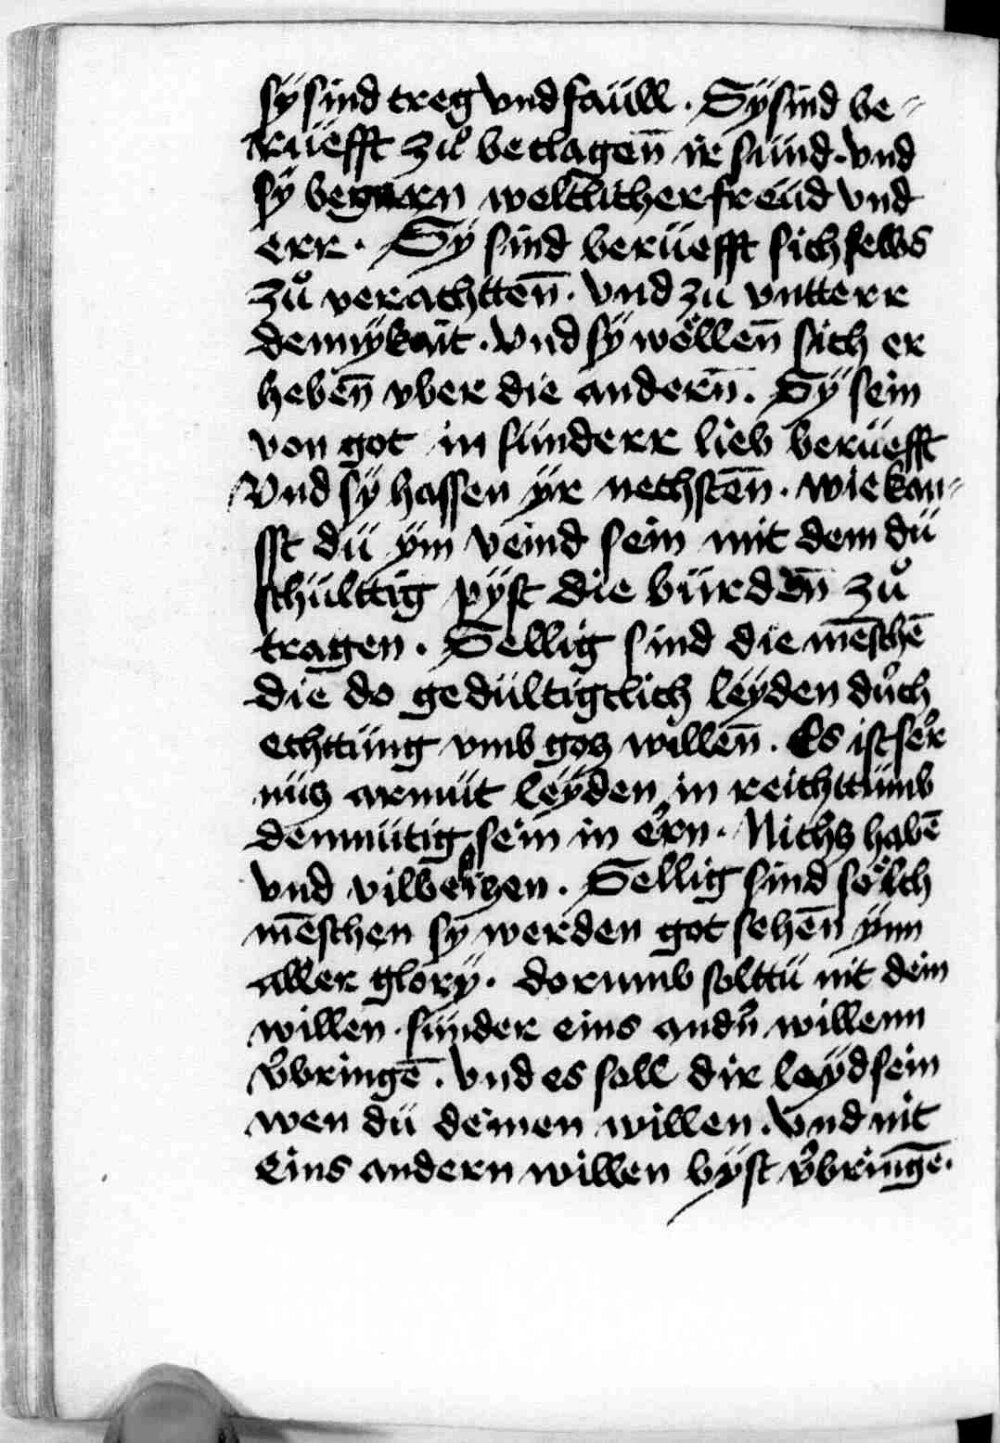 sÿ sind treg vnd faüll . Sÿ sind be-
rüefft zuͦ beclagen̄ ir sünd . vnd
sÿ begern weltlicher freüd vnd
err . Sÿ sind berüefft sich selbs
zuͦ verachtten̄ . vnd zu vntterr
demÿkait . vnd sÿ wöllen̄ sich er
heben̄ vber die andern̄ . Sÿ sein
von got in sünderr lieb berüefft
vnd sÿ hassen ÿr nechsten̄ . wie kan-
sst dü ÿm veind sein mit dem dü
schülttig pÿst die bürden̄ zuͦ
tragen . Sellig sind die mēschē
die do gedültigclich leÿden dũch
echttüng vmb gotz willen̄ . Es ist ser
nütz armüt leÿden in reichttümb
demmütig sein in ern . Nichtz habē
vnd vil beitzen . Sellig sind sölch
mēschen sÿ werden got sehen̄ ÿnn
aller glorÿ . dorumb solttü nit dein
willen . sünder eins andr̃n willenn
v̉bringē . vnd es soll dir leÿd sein
wen dü deinen willen . vnd nit
eins andern willen bÿst v̉bringē .